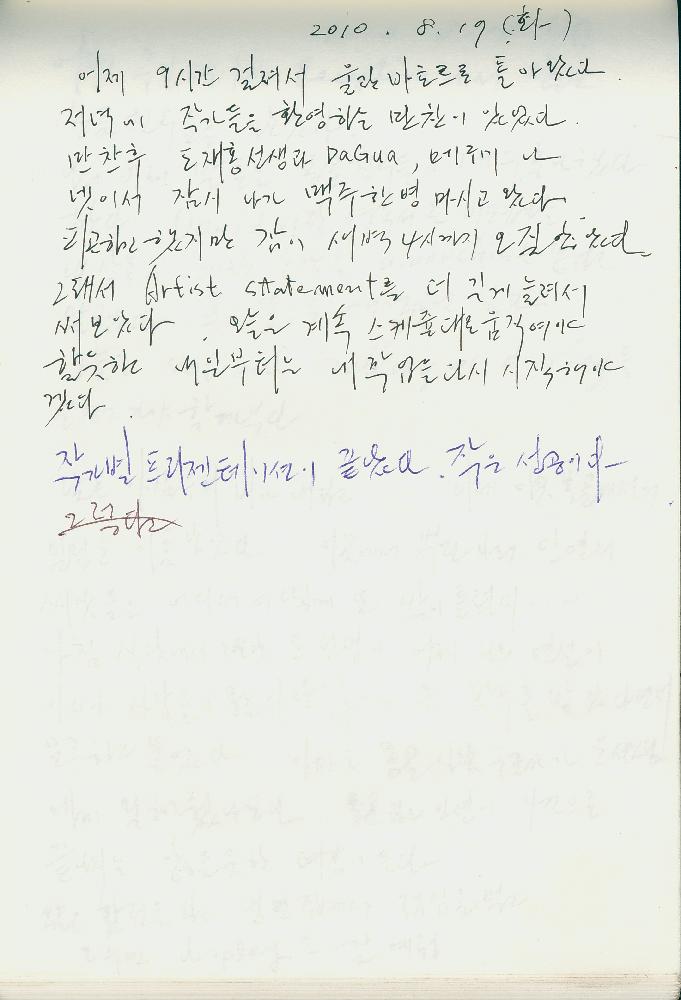 2010 . 8. 19 (화)
어제 9시간 걸려서 울란바토르로 돌아왔다.
저녁에 작가들을 환영하는 만찬이 있었다.
만찬후 도재홍선생과 DaGua, 메루게 나
넷이서 잠시 나가 맥주한병 마시고 왔다
피곤하긴 했지만 잠이 새벽 4시까지 오질 않았다
그래서 Artist statement를 더 길게 늘려서
써보았다. 오늘은 계속 스케줄대로 움직여야
할듯하고 내일부터는 내 작업을 다시 시작해야
겠다.
작가별 프리젠테이션이 끝났다. 작은 성공이다